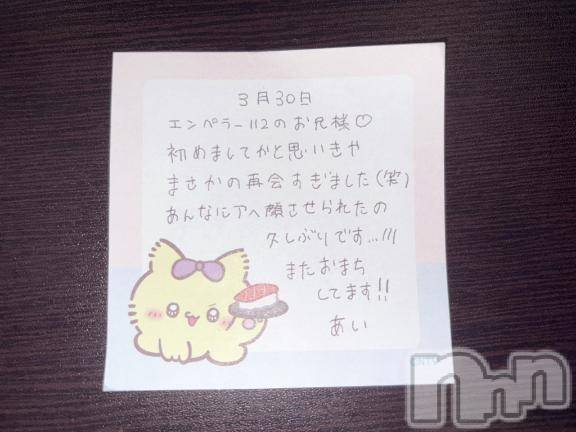 3月30日
エンペラー112のお兄様♡
初めましてかと思いきや
まさかの再会すぎました(笑)
あんなにアヘ顔させられたの
久しぶりです…///
またおまち
してます!!
あい
nnn